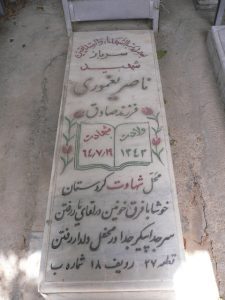 سرباز
شهید
ناصر یغموری
فرزند صادق
ولادت
شهادت
۱۳۴۳
۶۴/۷/۱۹
محل شهادت کردستان
خوشا با فرق خونین در لقای یار رفتن
سر جدا پیکر جدا در محفل دلدار رفتن
قطعه ۲۷ ردیف ۱۸ شماره ب